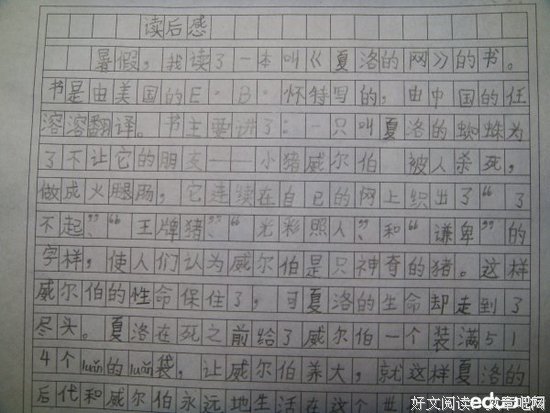 读后感
暑假，我读了一本叫《夏洛的网》的书。
书是由美国的E·B·怀特写的，由中国的任
溶溶翻译。书主要讲了：一只叫夏洛的蜘蛛为
了不让它的朋友——小猪威尔伯被人杀死，
做成火腿肠，它连续在自己的网上织出了“了
不起”、“王牌猪”、“光彩照人”、和“谦卑”的
字样，使人们认为威尔伯是只神奇的猪。这样
威尔伯的性命保住了，可夏洛的生命却走到了
尽头。夏洛在死之前给了威尔伯一个装满51
4个luǎn的luǎn袋，让威尔伯养大，就这样夏洛的
后代和威尔伯永远地生活在这个世
好文阅读
edu